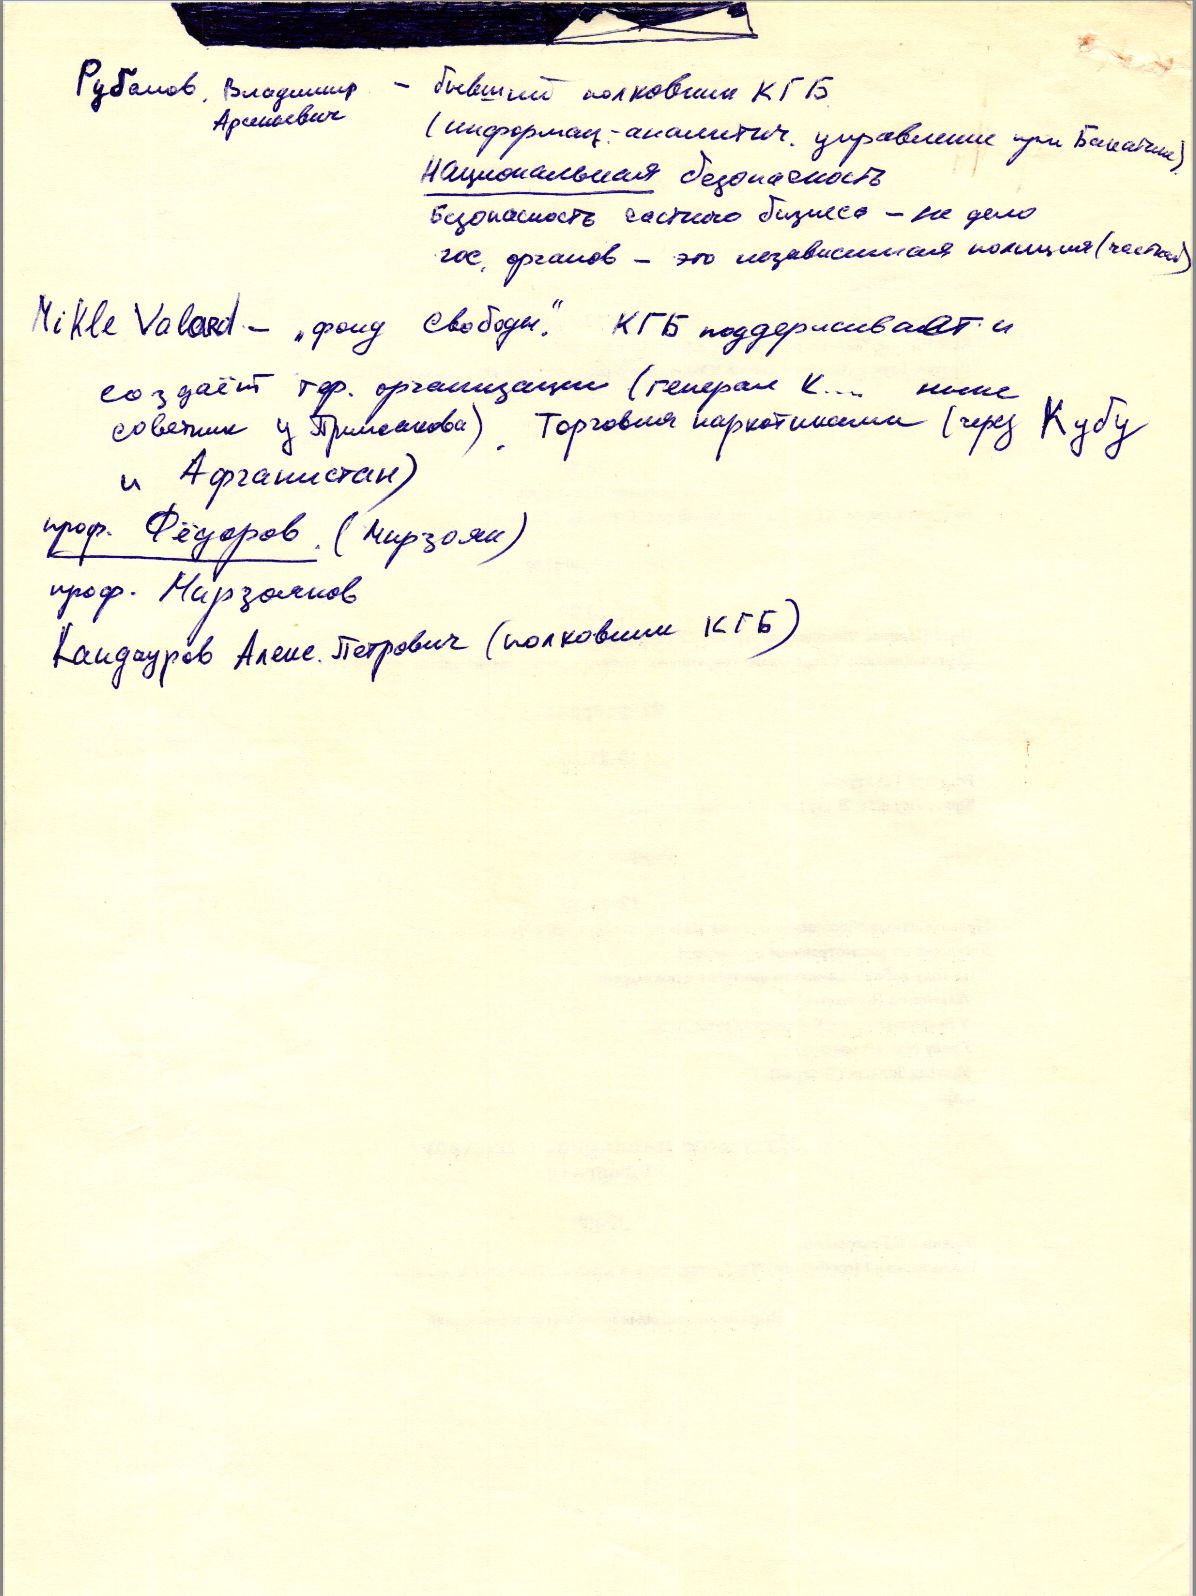 Рубанов, Владимир – бывший полковник КГБ
Арсеньевич
(информац.-аналитич. управление при Бакатине)
Национальная безопасность
Безопасность частного бизнеса – не дело
гос. органов – это независимая полиция (частная)
Mikle Valard – „фонд Свободы". КГБ поддерживает и
создаёт тер. организации (генерал К.... ныне
советник у Примакова). Торговля наркотиками (через Кубу
и Афганистан)
проф. Фёдоров. (Мирзоян)
проф. Мирзоянов
Кандауров Алекс. Петрович (полковник КГБ)